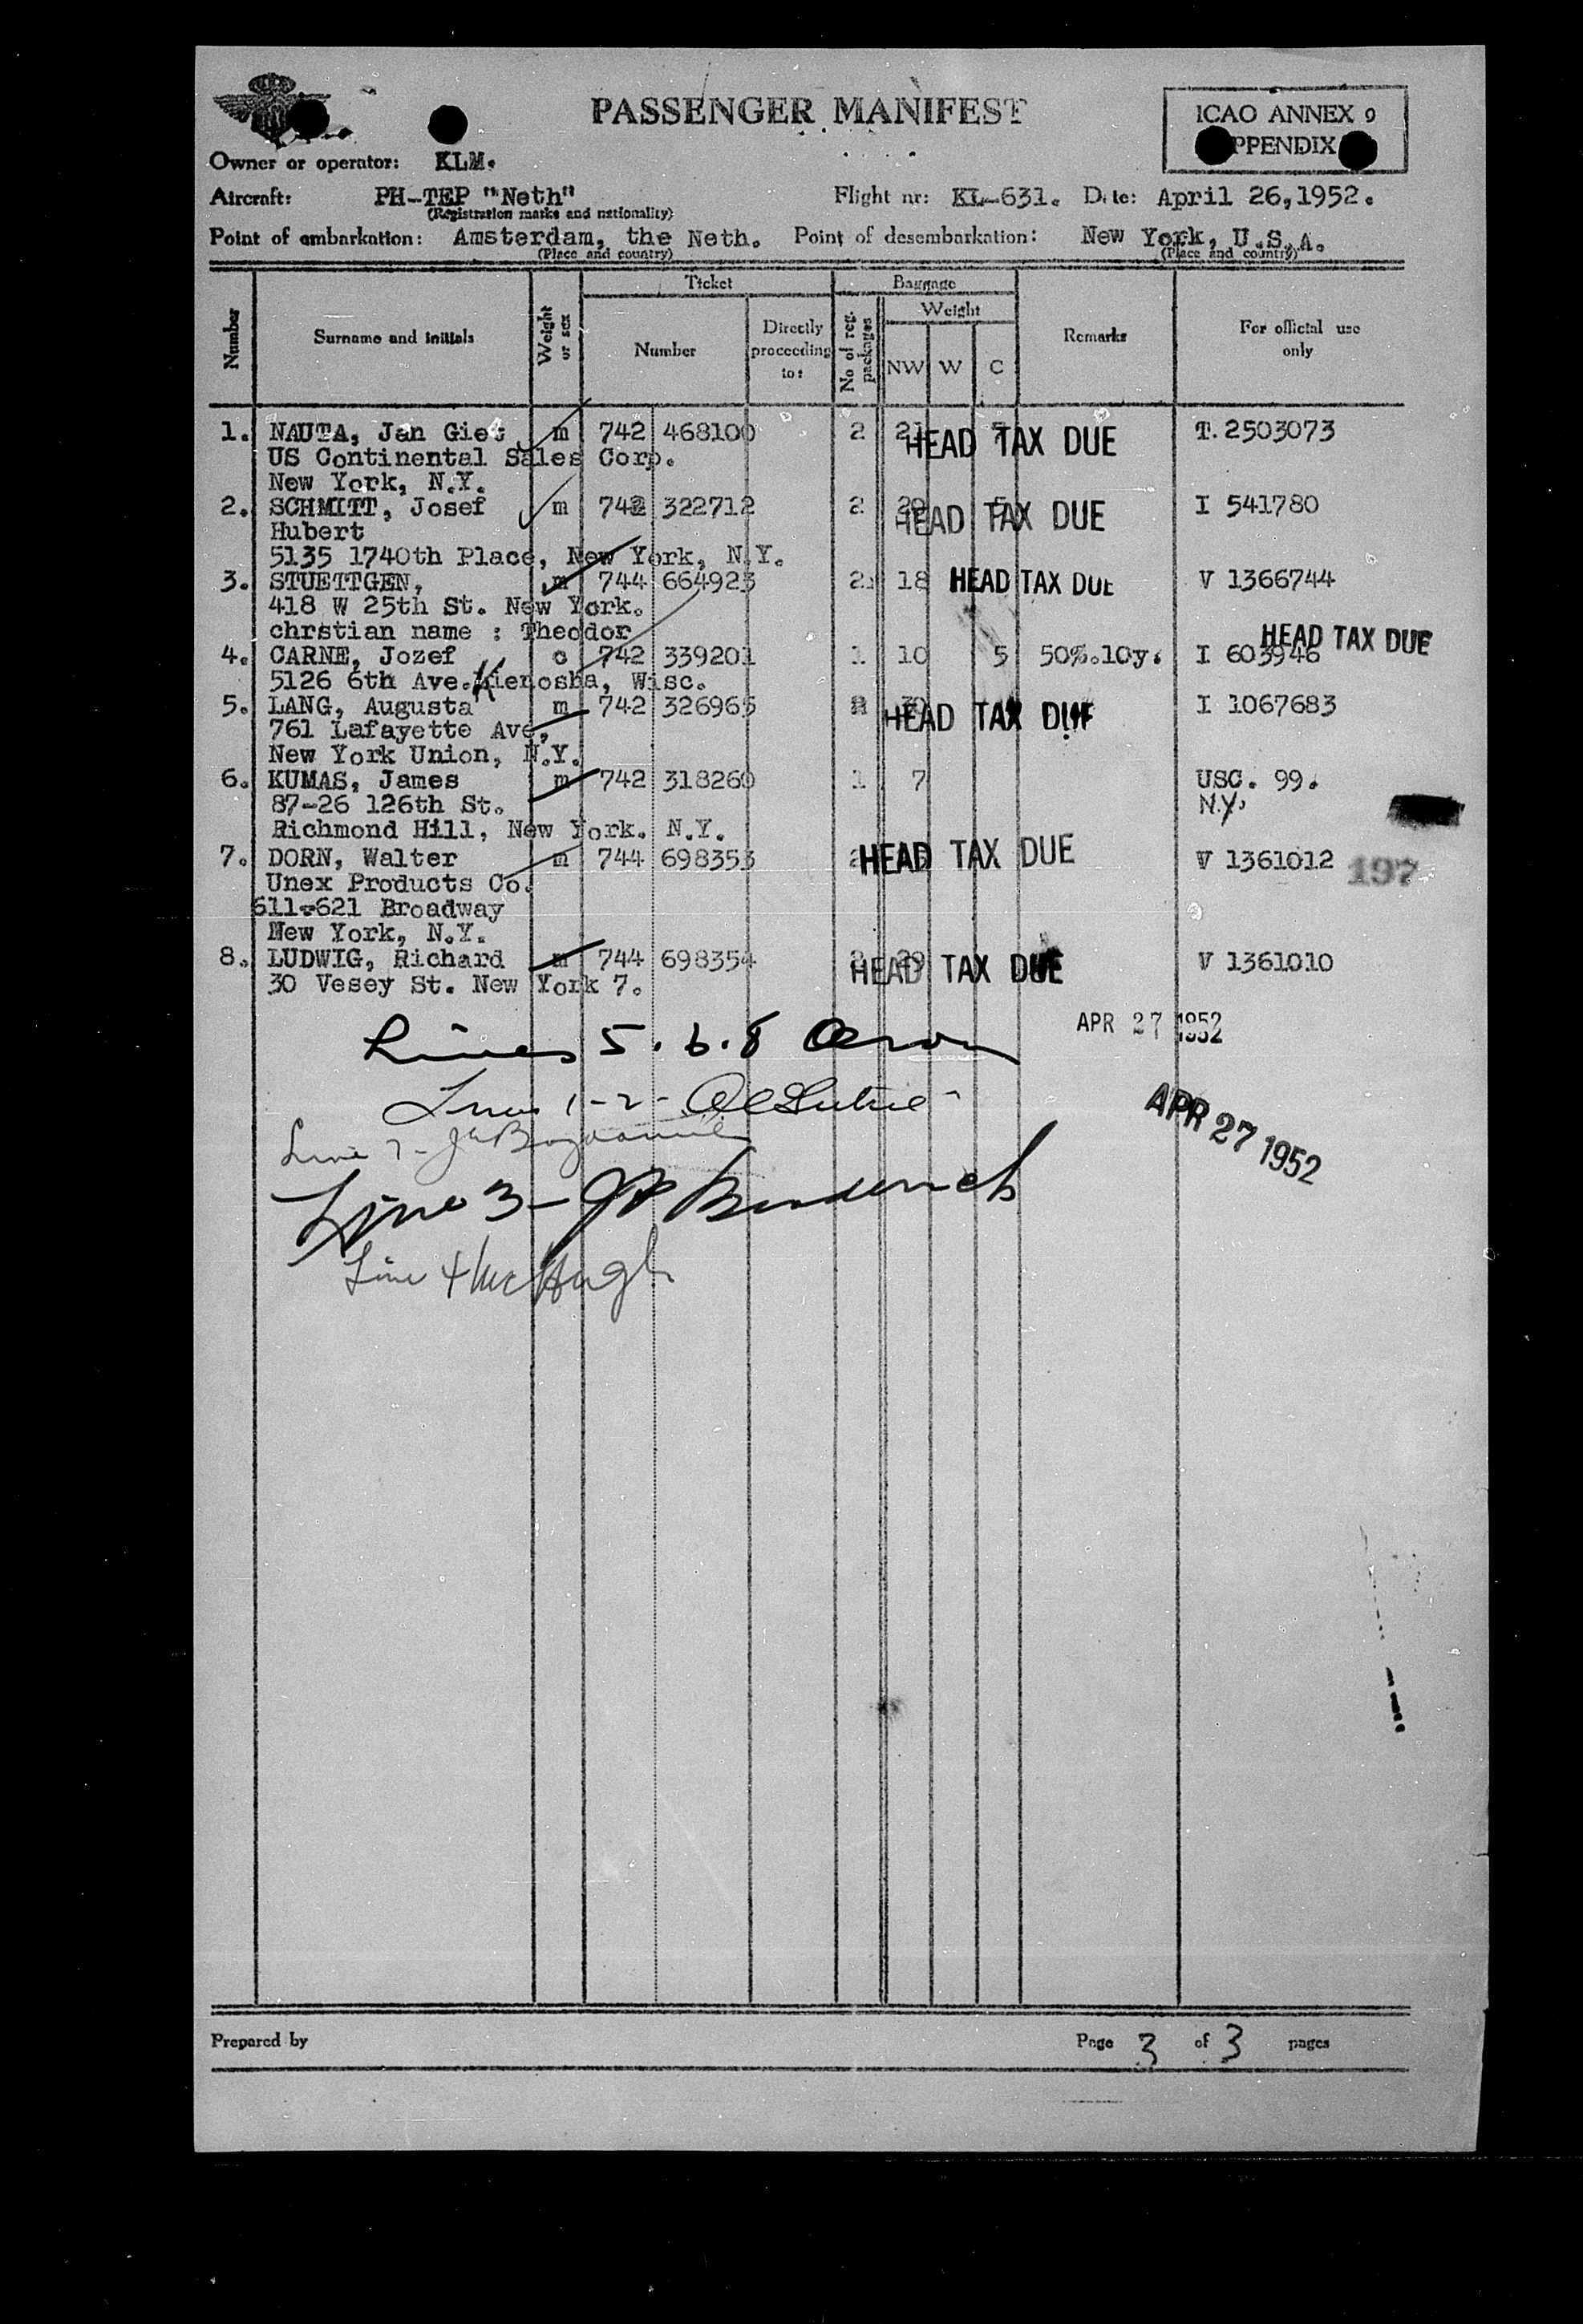 PASSENGER MANIFEST
ICAO ANNEX 9
PPENDIX
Owner or operator: KLM.
Aircraft: PH-TEP "Neth" Flight nr: KL-631. Date: April 26,1952.
(Registration marks and nationality)
Point of embarkation: Amsterdam, the Neth. Point of desembarkation: New York, U.S.A.
(Place and country) (Place and country)
Number Surname and initials Weight or sex Ticket Number Directly proceeding to: Baggage No of reg. packages Weight NW W C Remarks For official use only
1. NAUTA, Jan Giet m 742 468100 2 21 HEAD TAX DUE T.2503073
US Continental Sales Corp.
New York, N.Y.
2. SCHMITT, Josef m 742 322712 2 20 5 HEAD TAX DUE I 541780
Hubert
5135 1740th Place, New York, N.Y.
3. STUETTGEN, m 744 664923 2 18 HEAD TAX DUE V 1366744
418 W 25th St. New York.
chrstian name : Theodor
HEAD TAX DUE
4. CARNE, Jozef c 742 339201 1 10 5 50%.10y. I 603946
5126 6th Ave. Kienosha, Wisc.
5. LANG, Augusta m 742 326965 HEAD TAX DUE I 1067683
761 Lafayette Ave,
New York Union, N.Y.
6. KUMAS, James m 742 318260 1 7 USC. 99.
87-26 126th St. N.Y.
Richmond Hill, New York. N.Y.
7. DORN, Walter m 744 698353 2 HEAD TAX DUE V 1361012 197
Unex Products Co.
611-621 Broadway
New York, N.Y.
8. LUDWIG, Richard m 744 698354 2 HEAD TAX DUE V 1361010
30 Vesey St. New York 7.
Lines 5.6.8
APR 27 1952
Lines 1-2-
APR 27 1952
Line 7-
Line 3 - JP Broderick
Line 4 McHugh
Prepared by Page 3 of 3 pages